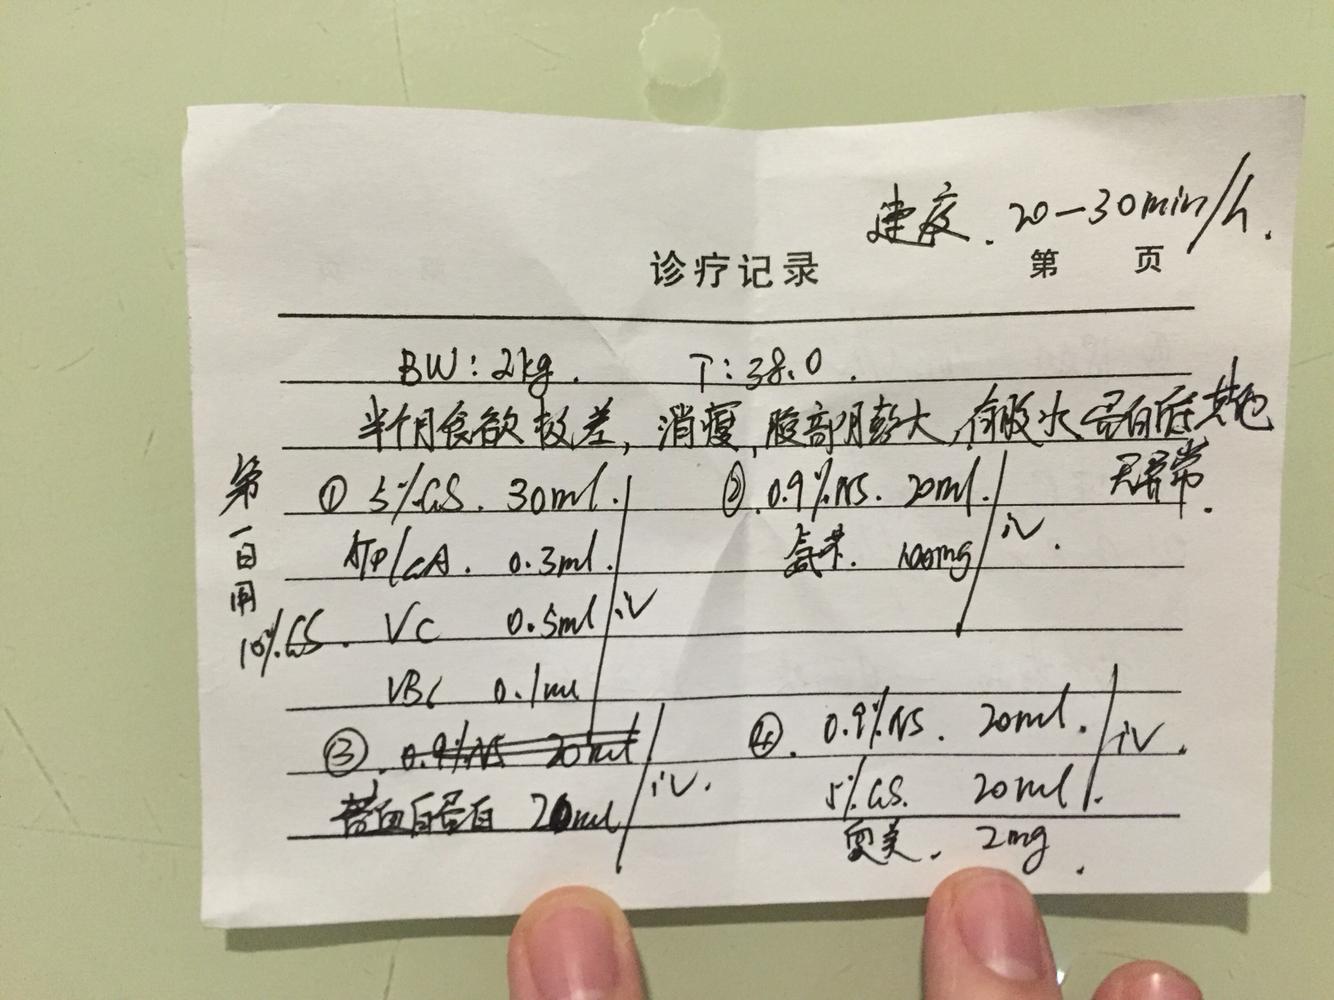 速度. 20-30min/h.
诊疗记录 第 页
BW: 2kg. T: 38.0.
半个月食欲较差, 消瘦, 腹部膨大, 有腹水 蛋白低 其他
无异常.
第一日用
10%GS.
① 5%GS. 30ml.
ATP/CoA. 0.3ml.
VC 0.5ml
VBC 0.1ml
iv
② 0.9%NS. 20ml.
100mg
iv.
③ 0.9%NS 20ml
血白蛋白 20ml
iv.
④. 0.9%NS. 20ml.
5%GS. 20ml.
奥美. 2mg.
iv.